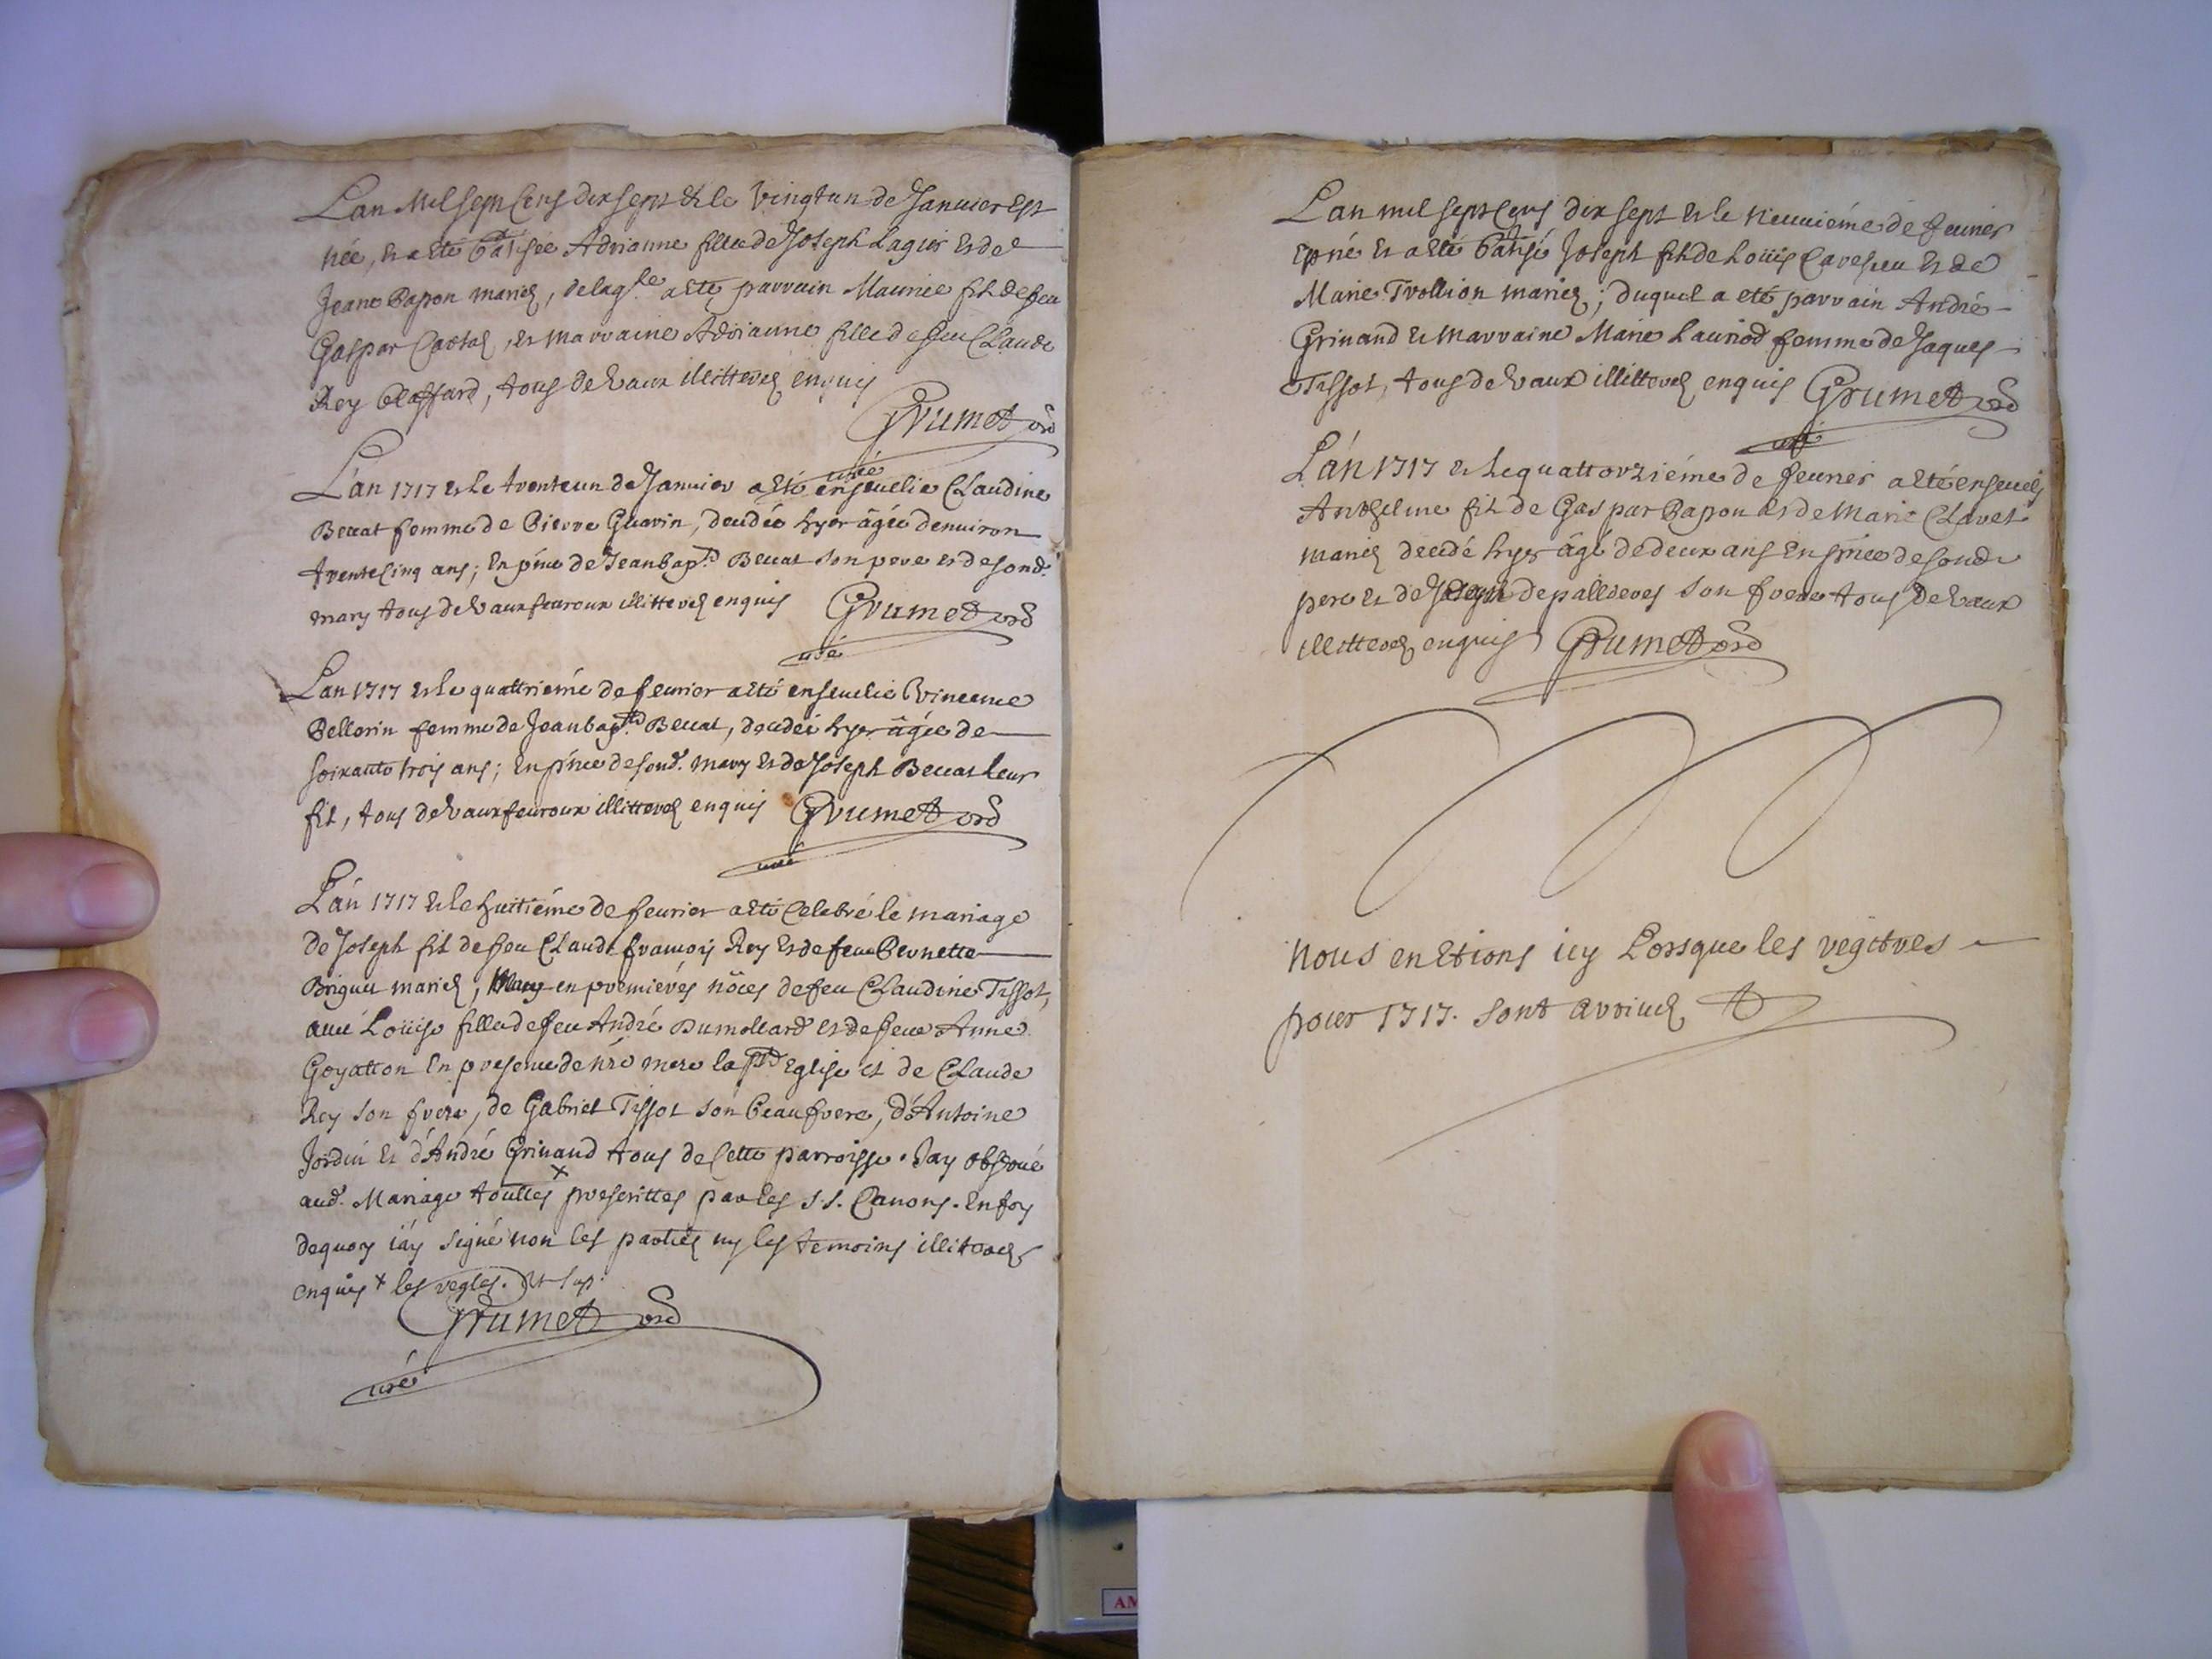 Lan Mil sept Cens dix sept & le vingt un de Janvier Est
née, & a eté batisée Adrianne fille de Joseph Lagier & de
Jeane Papon mariez, de laqle a eté parrain Maurice fils de feu
Gaspar & marraine Adrianne fille de feu Claude
Rey, tous de Vaux illitterez enquis
Grumet ord
curé
L'an 1717 & le trente un de Janvier a eté ensevelie Claudine
Beccat femme de Pierre Guerin, decedée hyer âgée denviron
trente cinq ans; En pñce de Jean bapte Beccat son pere & de sond.
mary tous de Vaux fevroux illitterez enquis Grumet ord
curé
Lan 1717 & le quattriéme de fevrier a eté ensevelie Vincenne
Pellorin femme de Jean bapte Beccat, decedée hyer âgée de
soixante trois ans; En pñce de sond. mary & de Joseph Beccat leur
fils, tous de Vaux fevroux illitterez enquis Grumet ord
curé
L'an 1717 & le huitiéme de fevrier a eté Celebré le mariage
de Joseph fils de feu Claude francois Rey & de feue Pernette
mariez, en premiéres nôces de feu Claudine Tissot,
avec Loüise fille de feu André Dumollard & de feue Anne
Goyatton En presence de nre mere la ste Eglise et de Claude
Rey son frere, de Gabriel Tissot son beau frere, d'Antoine
Jordin & d'André Grinand tous de Cette parroisse. Jay observé
aud. Mariage touttes x prescrittes par les S.S. Canons. En foy
dequoy iáy signé non les parties ny les temoins illiterez
enquis x les regles. 
Grumet ord
curé
Lan mil sept Cens dix sept & le neuviéme de fevrier
Est né & a eté batisé Joseph fils de Loüis & de
Marie Trollion mariez; duquel a eté parrain André
Grinand & marraine Marie Lauriod femme de Jaques
Tissot, tous de Vaux illitterez enquis Grumet ord
curé
L'an 1717 & le quattorziéme de fevrier a eté ensevely
Anthelme fils de Gaspar Papon & de Marie Clavel
mariez decedé hyer âgé de deux ans En pñce de sond.
pere & de Joseph son frere tous de Vaux
illitterez enquis Grumet ord
Nous en Etions icy Lorsque les regitres
pour 1717. sont arrivez
AM